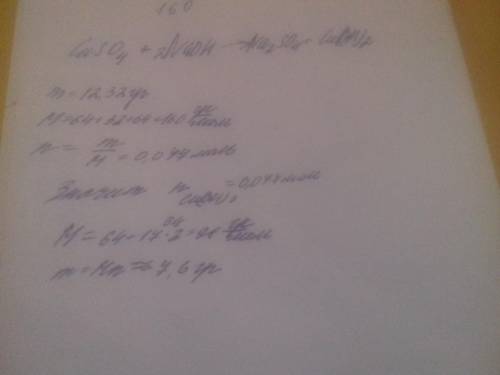 160
CuSO4 + 2NaOH → Na2SO4 + Cu(OH)2
m = 12,32 гр
M = 64 + 32 + 64 = 160 гр/моль
n = m/M = 0,077 моль
Значит n Cu(OH)2 = 0,077 моль
M = 64 + 17·2 = 98 гр/моль
m = Mn = 7,6 гр